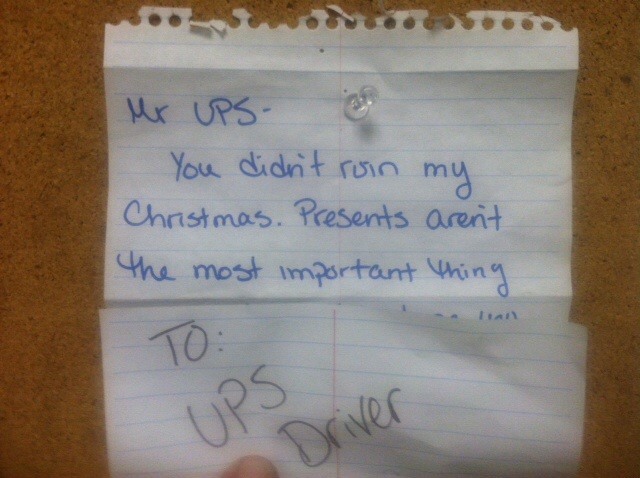 Mr UPS-
You didn't ruin my
Christmas. Presents aren't
the most important thing
TO:
UPS
Driver